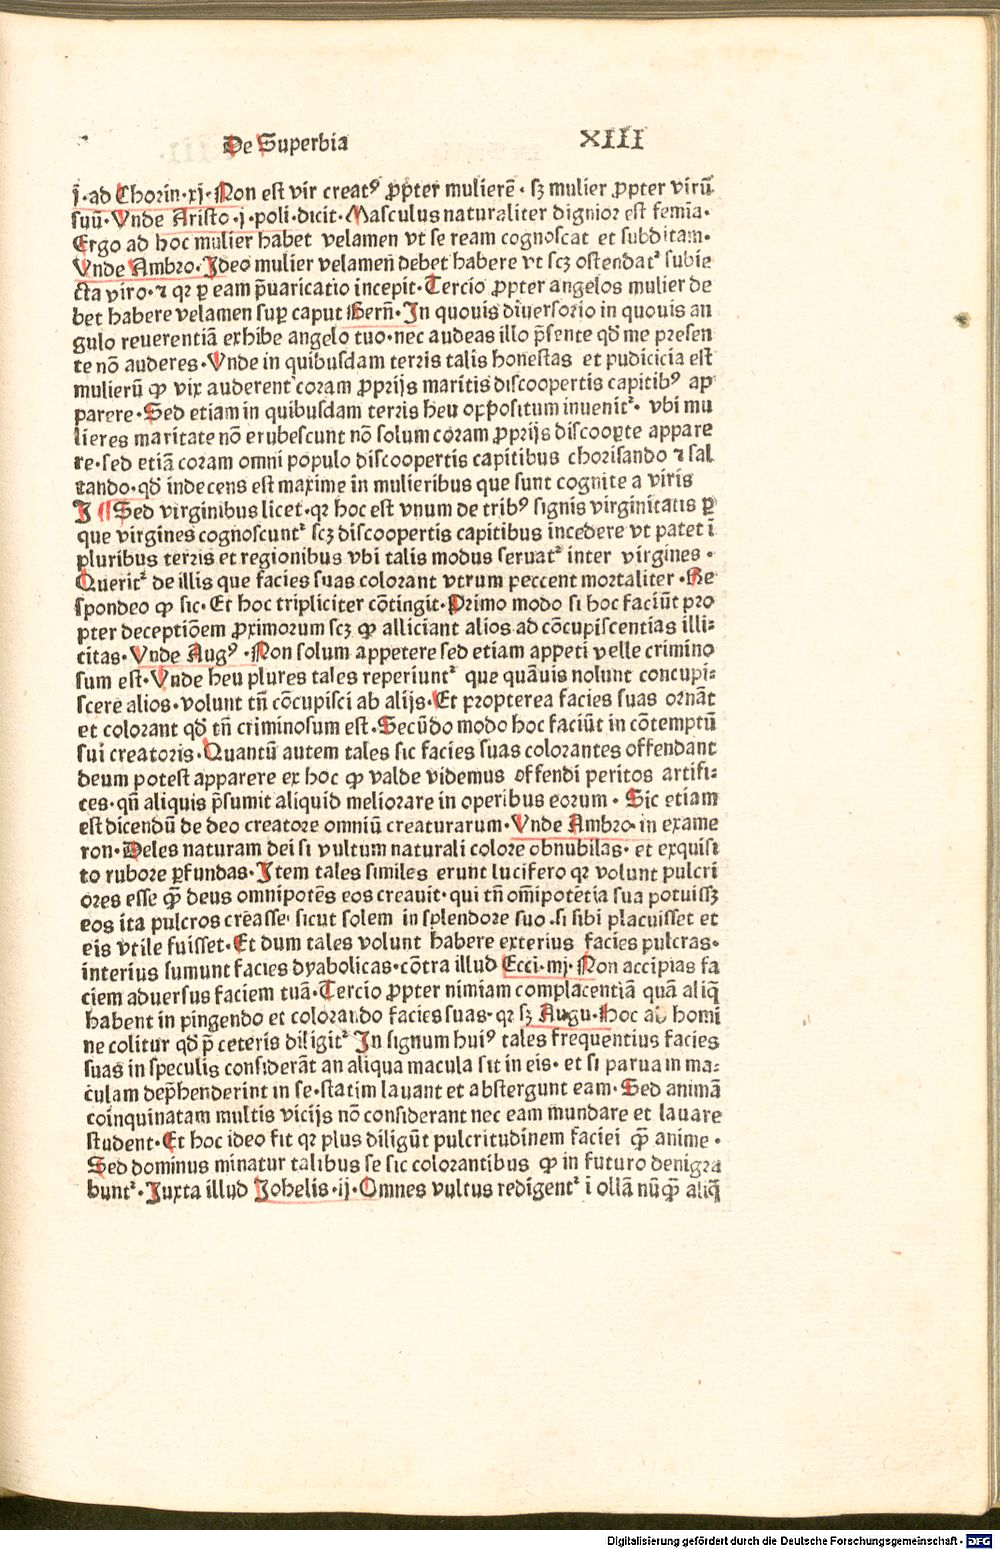 De Superbia XIII
j̄·ad Chorin·xj·Non est vir creatꝰ ꝓpter mulierē· sꝫ mulier ꝓpter virū
suū·Vnde Aristo·j·poli·dicit·Masculus naturaliter dignior est femīa·
Ergo ad hoc mulier habet velamen vt se ream cognoscat et subditam·
Vnde Ambro·Ideo mulier velamen debet habere vt scꝫ ostendatᷣ subie
cta viro·⁊ qꝛ ꝑ eam p̄uaricatio incepit·Tercio ꝓpter angelos mulier de
bet habere velamen suꝑ caput Bern̄·In quouis diuersorio in quouis an
gulo reuerentiā exhibe angelo tuo·nec audeas illo p̄sente qd̄ me presen
te nō auderes·Vnde in quibusdam terris talis honestas et pudicicia est
mulierū ꝙ vix auderent coram ꝓprijs maritis discoopertis capitibꝰ ap
parere·Sed etiam in quibusdam terris heu oppositum inuenitᷣ· vbi mu
lieres maritate nō erubescunt nō solum coram ꝓprijs discooꝑte appare
re·sed etiā coram omni populo discoopertis capitibus chorisando ⁊ sal
tando·qd̄ indecens est maxime in mulieribus que sunt cognite a viris
J ¶ Sed virginibus licet·qꝛ hoc est vnum de tribꝰ signis virginitatis ꝑ
que virgines cognoscuntᷣ scꝫ discoopertis capitibus incedere vt patet ī
pluribus terris et regionibus vbi talis modus seruatᷣ inter virgines·
Queritᷣ de illis que facies suas colorant vtrum peccent mortaliter·Re
spondeo ꝙ sic·Et hoc tripliciter cōtingit·Primo modo si hoc faciūt pro
pter deceptiōem ꝓximorum scꝫ ꝙ alliciant alios ad cōcupiscentias illi⸗
citas·Vnde Augꝰ·Non solum appetere sed etiam appeti velle crimino
sum est·Vnde heu plures tales reperiuntᷣ que quāuis nolunt concupi⸗
scere alios·volunt tn̄ cōcupisci ab alijs·Et propterea facies suas ornāt
et colorant qd̄ tn̄ criminosum est·Secūdo modo hoc faciūt in cōtemptū
sui creatoris·Quantū autem tales sic facies suas colorantes offendant
deum potest apparere ex hoc ꝙ valde videmus offendi peritos artifi⸗
ces·qn̄ aliquis p̄sumit aliquid meliorare in operibus eorum· Sic etiam
est dicendū de deo creatore omniū creaturarum·Vnde Ambro·in exame
ron·Deles naturam dei si vultum naturali colore obnubilas· et exquisi
to rubore ꝑfundas·Item tales similes erunt lucifero qꝛ volunt pulcri
ores esse qᷓ̄ deus omnipotēs eos creauit·qui tn̄ om̄ipotētia sua potuissꝫ
eos ita pulcros creasse· sicut solem in splendore suo·si sibi placuisset et
eis vtile fuisset·Et dum tales volunt habere exterius facies pulcras·
interius sumunt facies dyabolicas·cōtra illud Ecci·iiij·Non accipias fa
ciem aduersus faciem tuā·Tercio ꝓpter nimiam complacentiā quā aliq̄
habent in pingendo et colorando facies suas·qꝛ sꝫ Augu·Hoc ab homi
ne colitur qd̄ p̄ ceteris diligitᷣ In signum huiꝰ tales frequentius facies
suas in speculis considerāt an aliqua macula sit in eis·et si parua in ma⸗
culam dep̄henderint in se·statim lauant et abstergunt eam·Sed animā
coinquinatam multis vicijs nō considerant nec eam mundare et lauare
student·Et hoc ideo fit qꝛ plus diligūt pulcritudinem faciei qᷓ̄ anime·
Sed dominus minatur talibus se sic colorantibus ꝙ in futuro denigra
buntᷣ·Juxta illud Johelis·ij·Omnes vultus redigentᷣ ī ollā nūqᷓ̄ aliq̄
Digitalisierung gefördert durch die Deutsche Forschungsgemeinschaft - DFG